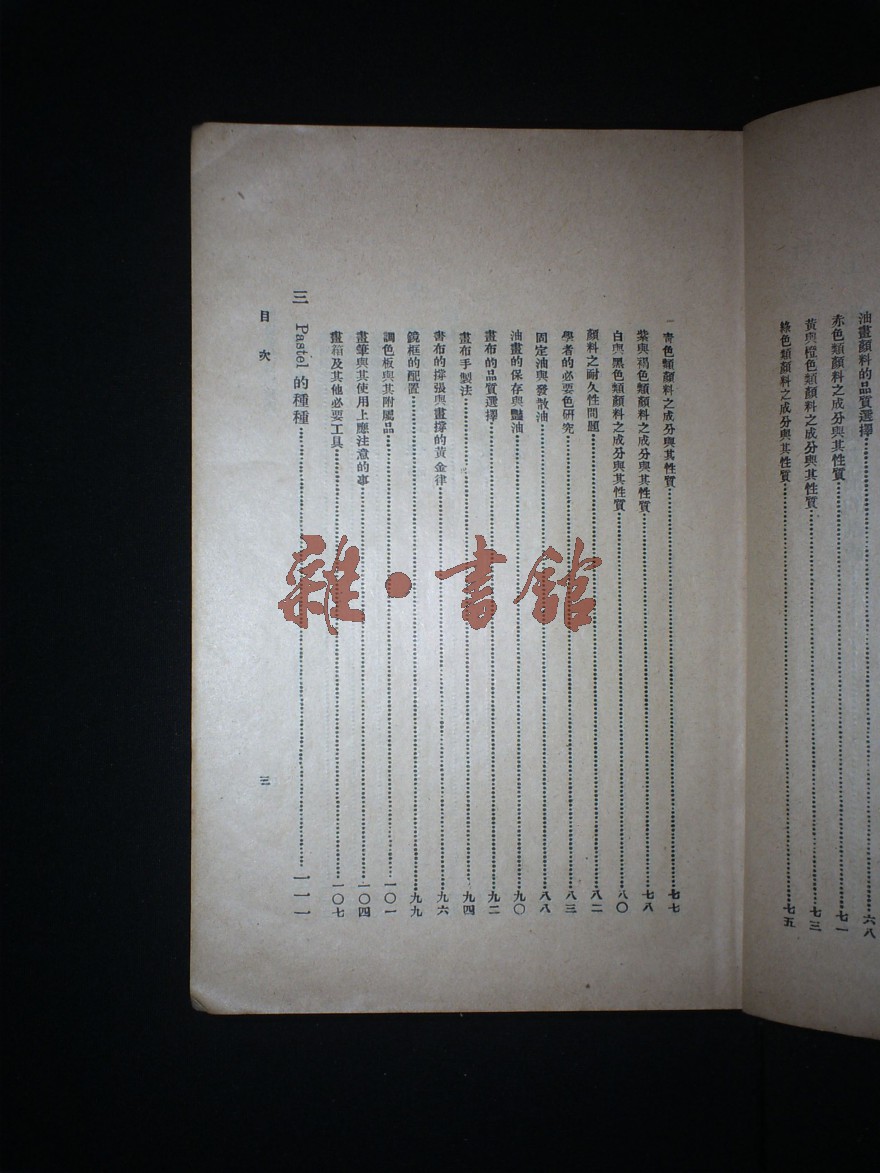 油畫顏料的品質選擇⋯⋯六八
赤色類顏料之成分與其性質⋯⋯七一
黃與橙色類顏料之成分與其性質⋯⋯七三
綠色類顏料之成分與其性質⋯⋯七五
青色類顏料之成分與其性質⋯⋯七七
紫與褐色類顏料之成分與其性質⋯⋯七八
白與黑色類顏料之成分與其性質⋯⋯八〇
顏料之耐久性問題⋯⋯八二
學者的必要色研究⋯⋯八三
固定油與發散油⋯⋯八八
油畫的保存與豔油⋯⋯九〇
畫布的品質選擇⋯⋯九二
畫布手製法⋯⋯九四
畫布的撐張與畫撐的黃金律⋯⋯九六
鏡框的配置⋯⋯九九
調色板與其附屬品⋯⋯一〇一
畫筆與其使用上應注意的事⋯⋯一〇四
畫箱及其他必要工具⋯⋯一〇七
三 Pastel 的種種⋯⋯一一一
目次
三
雜·書館